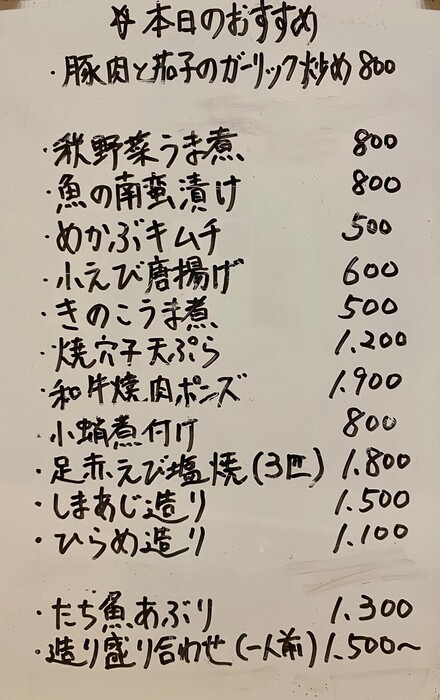 ☆本日のおすすめ
・豚肉と茄子のガーリック炒め 800
・秋野菜うま煮 800
・魚の南蛮漬け 800
・めかぶキムチ 500
・小えび唐揚げ 600
・きのこうま煮 500
・焼穴子天ぷら 1.200
・和牛焼肉ポンズ 1.900
・小蛸煮付け 800
・足赤えび塩焼(3匹) 1.800
・しまあじ造り 1.500
・ひらめ造り 1.100
・たち魚あぶり 1.300
・造り盛り合わせ(一人前) 1.500~